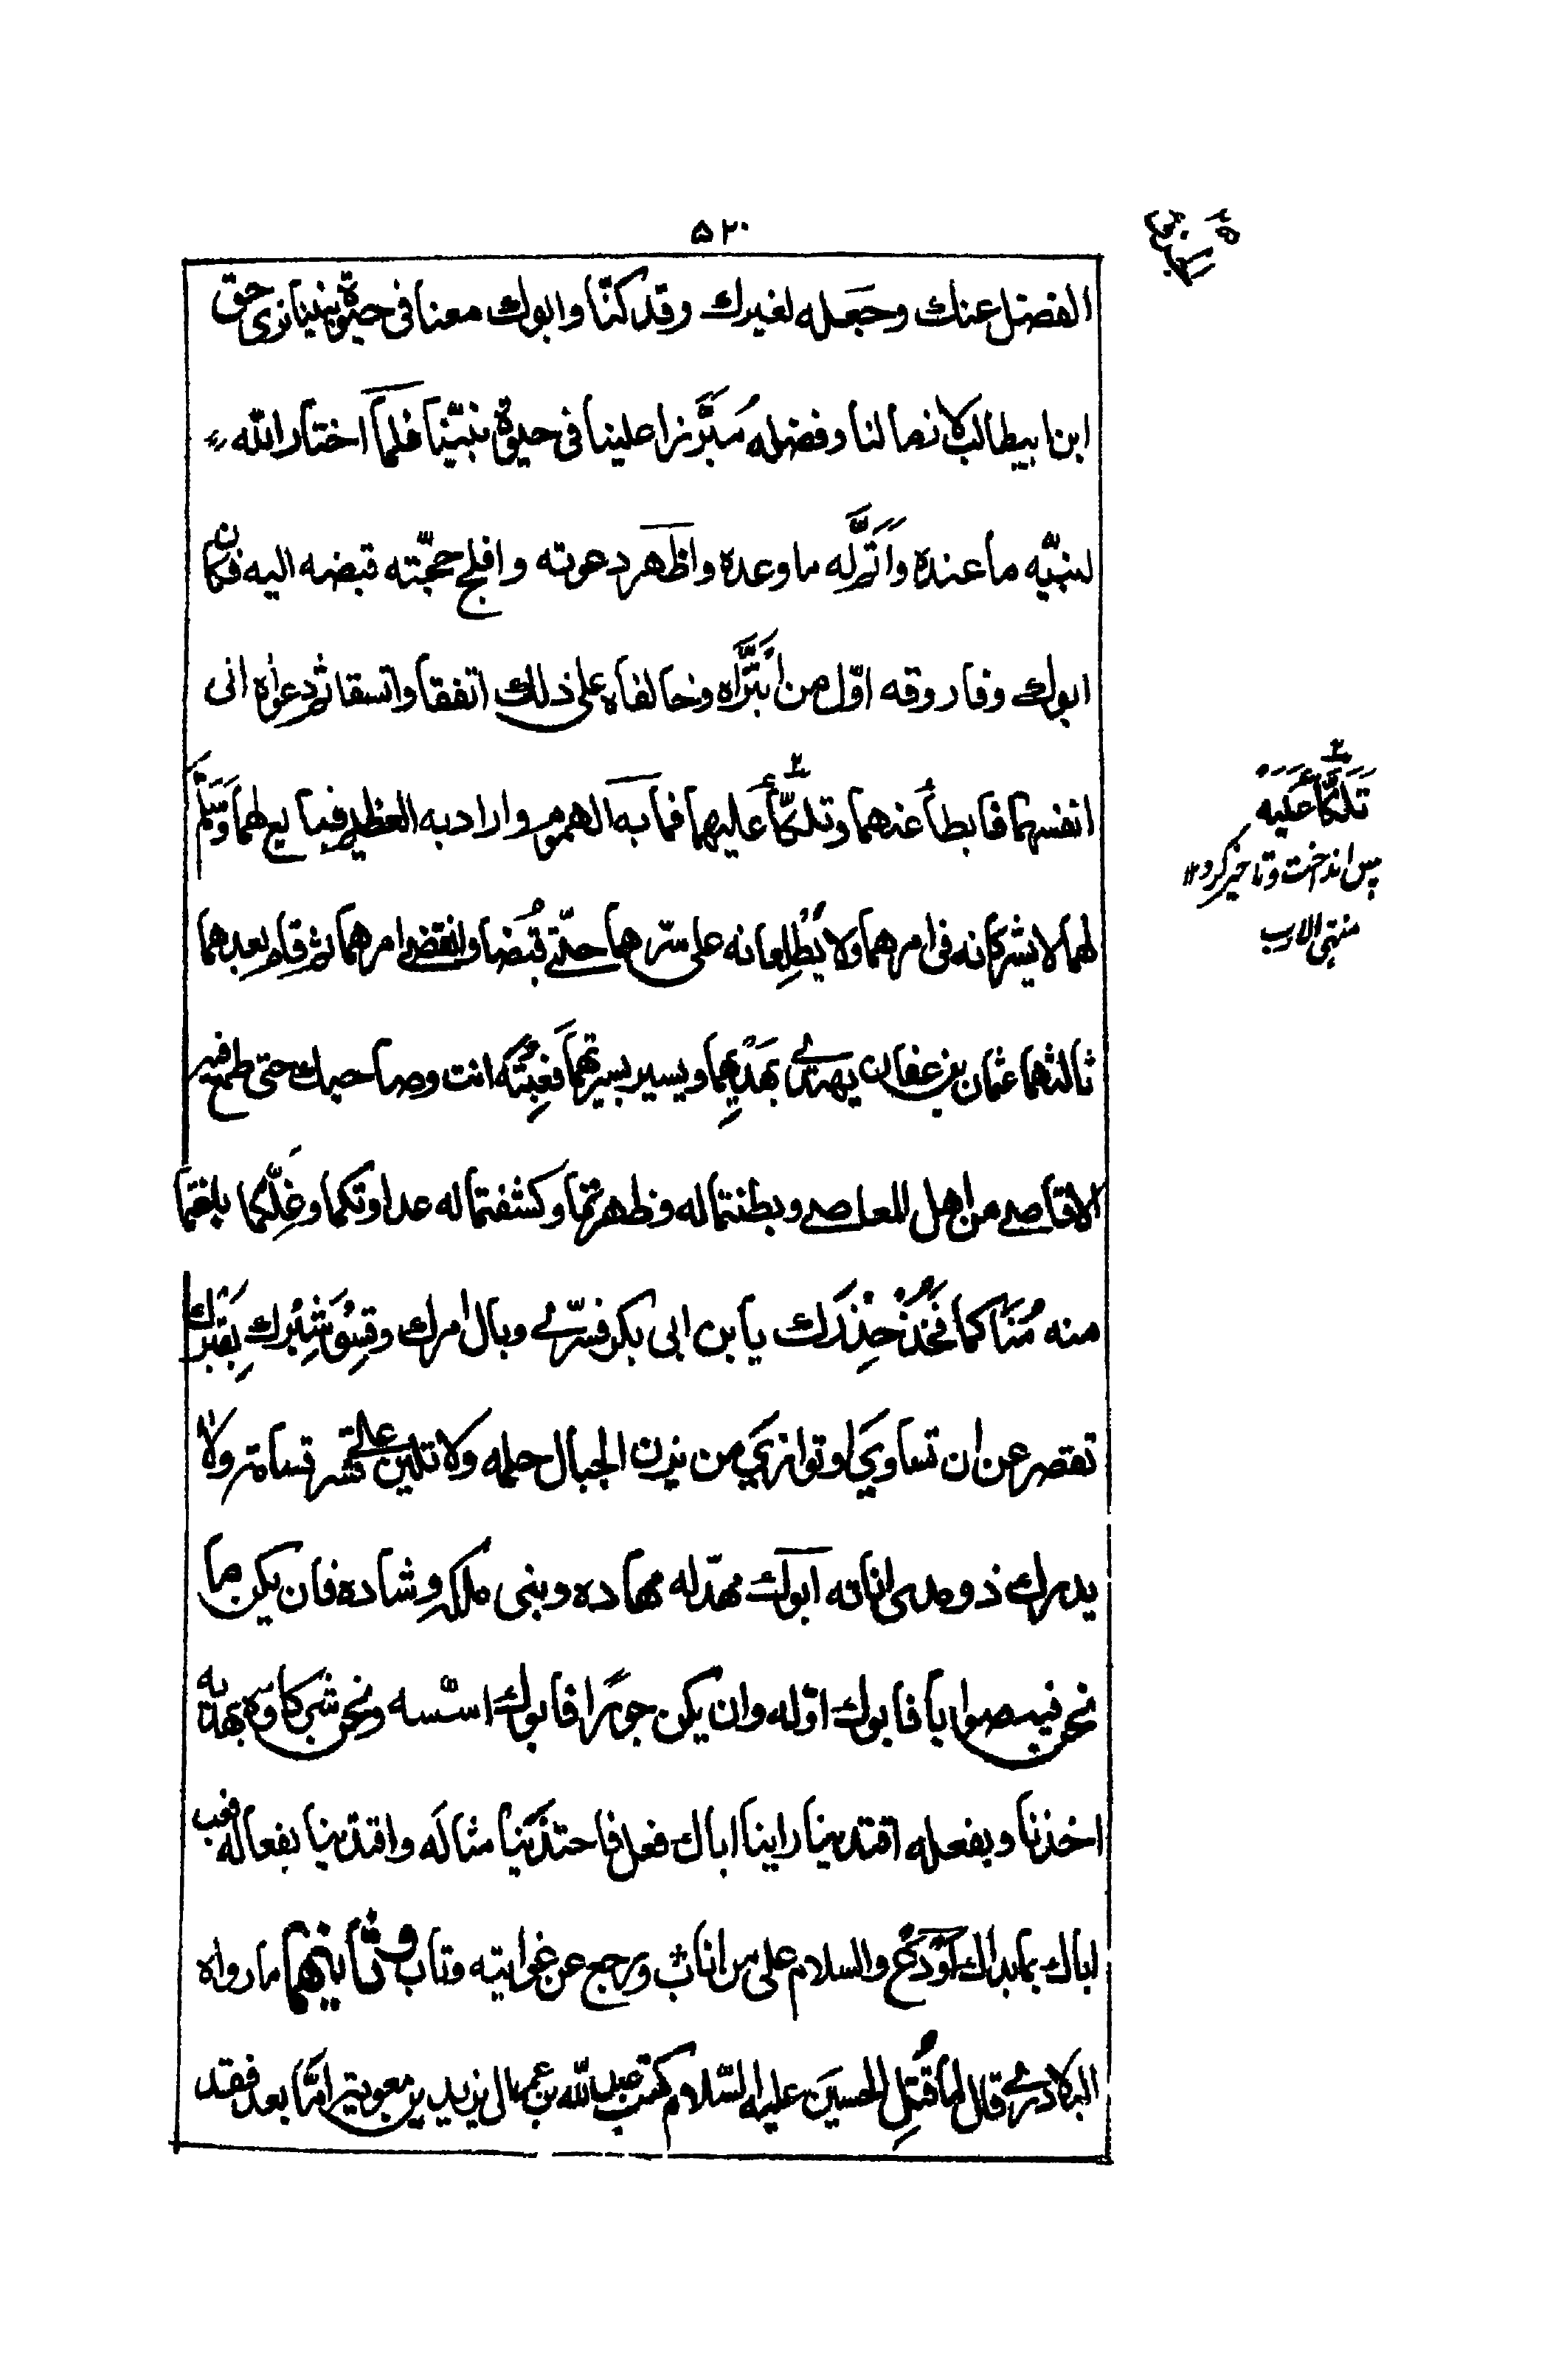 ۵۲۰
الفضل عنك وجعله لغيرك وقد كنّا وابوك معنا فى حيوة نبينا نرى حق
ابن ابيطالب لازما لنا وفضله مُبَرَّزا علينا فى حيوة نبيّنا فلمّا اختار الله
لنبيّه ما عنده واَتَمَّ له ما وعده واظهر دعوته وافلج حجّته قبضه اليه فكان
ابوك وفاروقه اوّل من ابْتَزَّاه وخالفاه على ذلك اتفقا واتسقا ثم دعواه الى
انفسهما فابطأ عنهما وتلكّأ عليهما فهما به الهموم وارادا به العظيم فبايع لهما وسَلَّمَ
لهما لا يشركانه فى امرهما ولا يُطْلِعانه على سرّهما حتّى قُبضا وانقضى امرهما ثم قام بعدهما
ثالثهما عثمان بن عفان يهتدى بهَدْيِهما ويسير بسيرتهما فعِبْتَه انت وصاحبك حتى طمع فيه
الاقاصى من اهل المعاصى وبطنتما له وظهرتما وكشفتما له عداوتكما وغِلَّكما بلغتما
منه مُناكما فخُذْ حِذْرَك يا بن ابى بكر فسترى وبال امرك وقِسْ شِبْرَك بِفِتْرِك
تقصر عن ان تساوي او توازي من يزن الجبال حلمه ولا تلين على قسر قساته ولا
يدرك ذو مدى اناته ابوك مهّد له مهاده وبنى ملكه وشاده فان يكن ما
نحن فيه صوابا فابوك اوّله وان يكن جورًا فابوك اسّسه ونحن شركاؤه بهديه
اخذنا وبفعله اقتدينا راينا اباك فعل فاحتذينا مثاله واقتدينا بفعاله فعب
اباك بما بدا لك اَوْ دَعْ والسلام على من اناب ورجع عن غوايته وتاب وثانيهما ما رواه
البلاذرى قال لما قُتِل الحسين عليه السّلام كتب عبد الله بن عمر الى يزيد بن معوية امّا بعد فقد
تَلَكَّأَ عَلَيْه
پس انداخت وتاخير كرد ۱۲
منتهى الارب